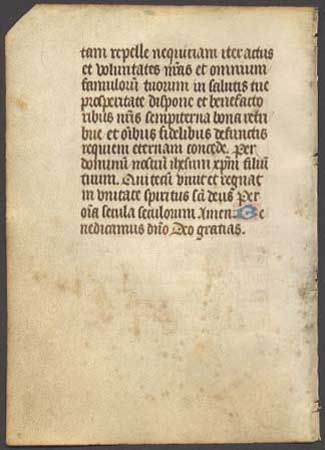 tam repelle nequitiam iter actus
et voluntates nr̄as et omnium
famulorū tuorum in salutis tue
prosperitate dispone et benefacto
ribus nr̄is sempiterna bona retri
bue et oībus fidelibus defunctis
requiem eternam concede. Per
dominū nostrū ihesum xpm̄ filiū
tuum. Qui tecū viuit et regnat
in vnitate spiritus sc̄i deus Per
oīa secula seculorum Amen. Be
nedicamus dn̄o Deo gratias.